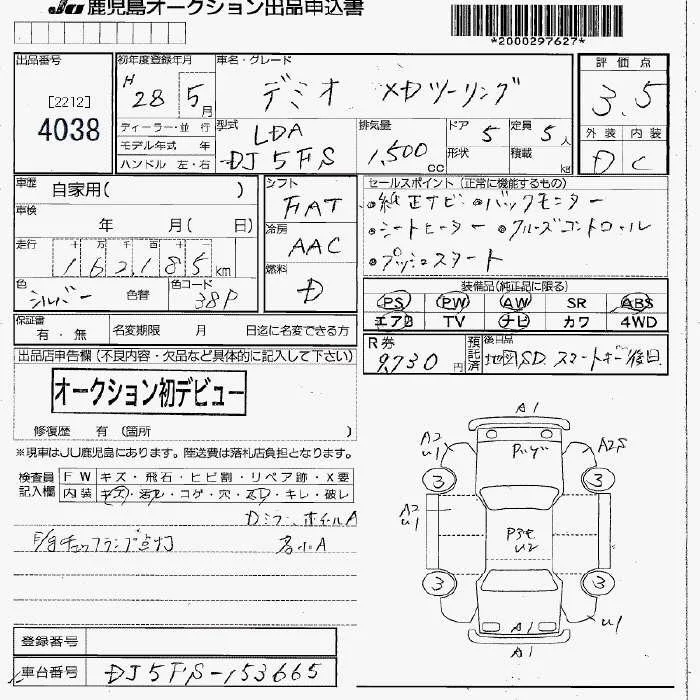 JU鹿児島オークション出品申込書
*2000297627*
出品番号
[2212]
4038
初年度登録年月
H 28 5月
車名・グレード
デミオ XDツーリング
評価点
3.5
外装 内装
D C
ディーラー・並 行
モデル年式 年
ハンドル 左・右
型式
LDA
DJ5FS
排気量
1,500 cc
ドア 5
形状
定員 5人
積載 kg
車歴 自家用( )
車検
年 月( 日)
走行 十 万 千 百 十
162,185 km
色
シルバー 色替
色コード
38P
シフト
FIAT
冷房
AAC
燃料
D
セールスポイント (正常に機能するもの)
●純正ナビ ●バックモニター
●シートヒーター ●クルーズコントロール
●プッシュスタート
装備品(純正品に限る)
PS PW AW SR ABS
エアB TV ナビ カワ 4WD
保証書
有・無
名変期限 月 日迄に名変できる方
R券
9,730円
預託済
後日品
地図SD. スマートキー後日
出品店申告欄(不良内容・欠品など具体的に記入して下さい)
オークション初デビュー
修復歴 有 (箇所 )
※現車はJU鹿児島にあります。陸送費は落札店負担となります。
検査員
記入欄
FW キズ・飛石・ヒビ割・リペア跡・X要
内装 キズ・汚レ・コゲ・穴・スレ・キレ・破レ
ホイールA
チェックランプ点灯
小A
A1
A2
U1
A2S
3
3
A2
U1
U2
3
3
A1
U1
A1
登録番号
車台番号 DJ5FS-153665